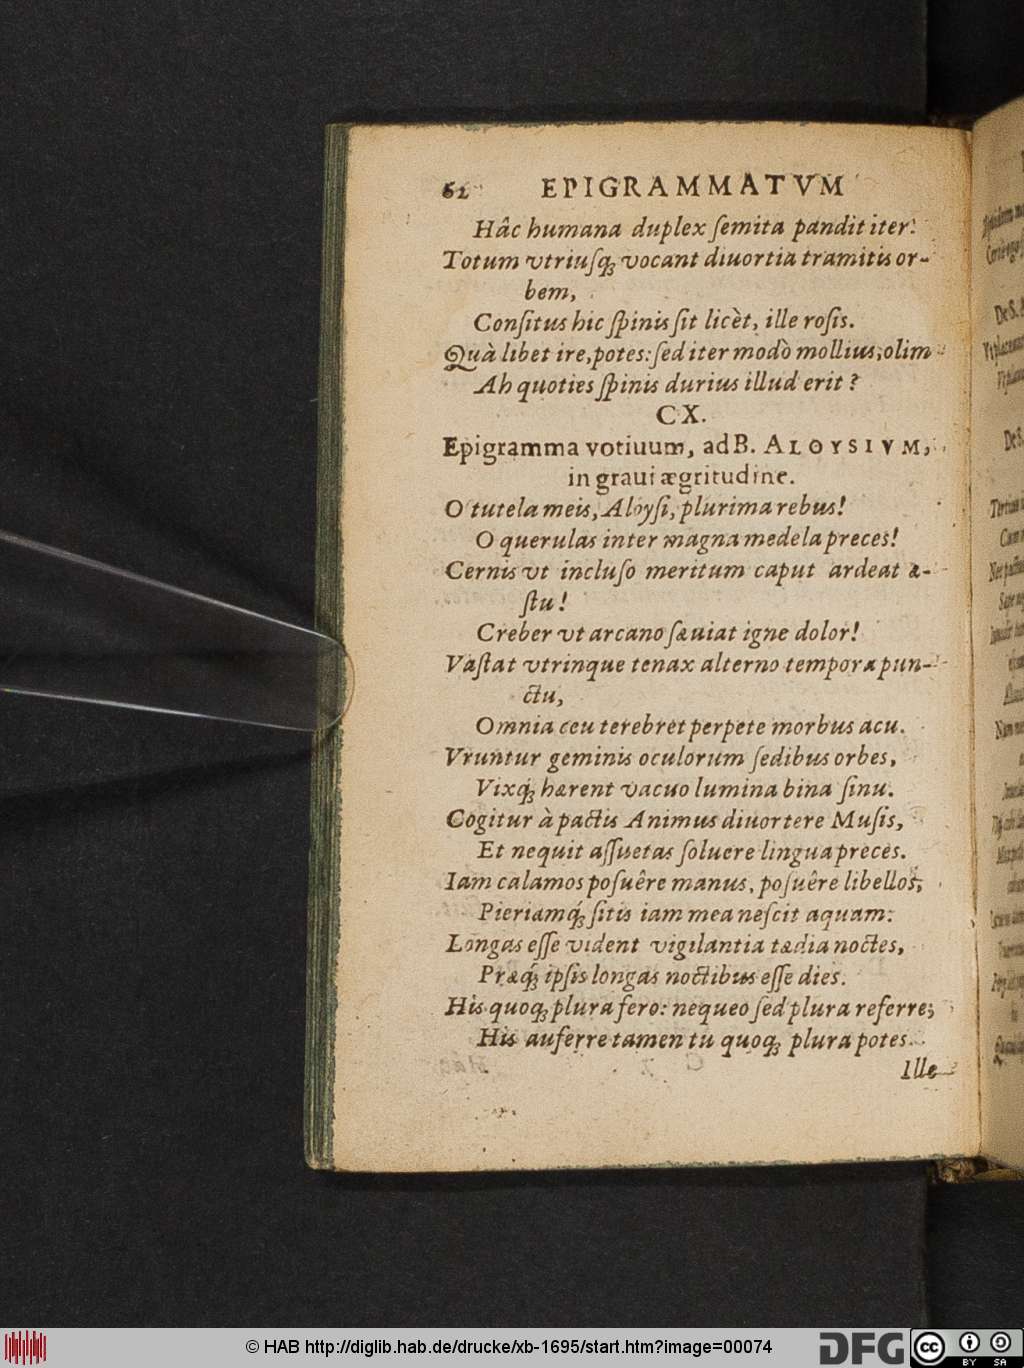 62 EPIGRAMMATVM
Hâc humana duplex ſemita pandit iter:
Totum vtriuſq́; vocant diuortia tramitis or-
bem,
Conſitus hic ſpinis ſit licèt, ille roſis.
Quà libet ire, potes: ſed iter modò mollius, olim
Ah quoties ſpinis durius illud erit?
CX.
Epigramma votiuum, ad B. ALOYSIVM,
in graui ægritudine.
O tutela meis, Aloyſi, plurima rebus!
O querulas inter magna medela preces!
Cernis vt incluſo meritum caput ardeat æ-
ſtu!
Creber vt arcano ſæuiat igne dolor!
Vaſtat vtrinque tenax alterno tempora pun-
ctu,
Omnia ceu terebret perpete morbus acu.
Vruntur geminis oculorum ſedibus orbes,
Vixq́; hærent vacuo lumina bina ſinu.
Cogitur à pactis Animus diuortere Muſis,
Et nequit aſſuetas ſoluere lingua preces.
Iam calamos poſuêre manus, poſuêre libellos;
Pieriamq́; ſitis iam mea neſcit aquam:
Longas eſſe vident vigilantia tædia noctes,
Præq́; ipſis longas noctibus eſſe dies.
His quoq; plura fero: nequeo ſed plura referre;
His auferre tamen tu quoq; plura potes.
Ille
© HAB http://diglib.hab.de/drucke/xb-1695/start.htm?image=00074
DFG
cc
BY SA